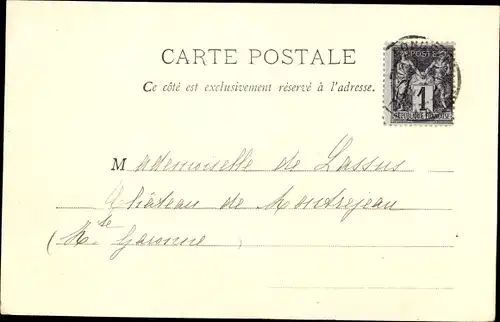 CARTE POSTALE
Ce côté est exclusivement réservé à l'adresse.
POSTE
1
REPUBLIQUE FRANCAISE
Mademoiselle de Lassus
Château de Montrejeau
(Hte Garonne)